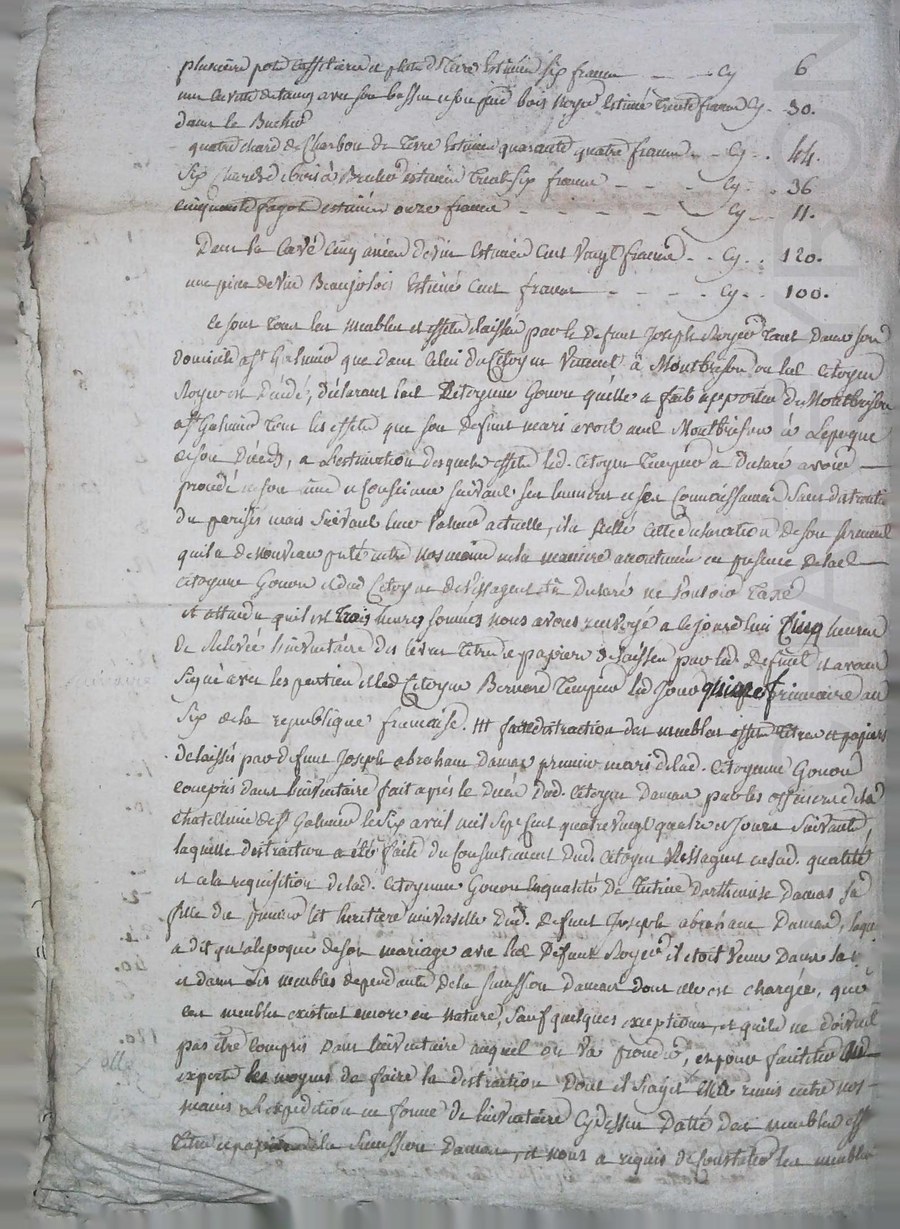 plusieurs pots cassetiere et plats de Terre Estimés six francs — — Cy 6
une cuvate detaing avec son bassin et son pied bois noyer Estimé trente francs Cy. 30.
dans le Bucher
quatre chards de Charbon de Terre Estimés quarante quatre francs - - Cy. . 44.
Six Chards de bois à Bruler estimés trente Six francs — — — Cy. . 36
cinquante fagots estimés onze francs - - - - - Cy. . 11.
Dans la Cave Cinq anées de vin Estimées Cent Vingt francs - . Cy. . 120.
une piece de vin Beaujolois Estimée Cent francs - - - - Cy. . 100.
Ce sont tous les meubles et effets delaissés par le defunt Joseph Royer tant dans son
domicile a St Galmier que dans Celui du Citoyen à Montbrison ou led Citoyen
Royer est Décédé, declarant lad Citoyenne Gonon qu'elle a fait apporter de Montbrison
a St Galmier tous les effets que son defunt mari avoit aud Montbrison à Lepoque
de son Décès, a Lestimation desquels effets led. Citoyen Tempier a declaré avoir
procédé en son ame et Conscience suivant ses lumieres et ses Connoissances sans distraction
du perisés mais suivant leur valeur actuelle, il a cette declaration de son serment
quil a de nouveau preté entre nos mains en la maniere accoutumée en presence de lad
Citoyenne Gonon et dud Citoyen de Vessagnes et a declaré ne vouloir Taxe
et attendu qu'il est trois heures sonnées nous avons renvoyé a ce jourdhui Cinq heures
de Relevée linventaire des livres titres et papiers delaissés par led. Defunt et avons
Signé avec les parties et led Citoyen Bernard Tempier led Jour quinze frimaire an
Six de la republique francaise. faire distraction des meubles effets titres et papiers
delaissés par defunt Joseph abraham Damas premier mari de lad. Citoyenne Gonon
compris dans linventaire fait après le décès dud. Citoyen Damas par les officiers de la
Chatellenie de St Galmier le Six avril mil Sept Cent quatre vingt quatre et Jours Suivants,
laquelle distraction a été faite du Consentement dud. Citoyen Vessagnes en sad. qualité
et a la requisition de lad. Citoyenne Gonon En qualité de Tutrice Darthemise Damas sa
fille du premier lit heritiere universelle dud. Defunt Joseph abraham Damas, laqu.
a dit qu'a lepoque de son mariage avec led Defunt Royer il etoit venu Dans la
et dans les meubles dependants de la Succession Damas dont elle est chargée, que
ces meubles existent encore en nature, Sauf quelques exceptions, et quils ne doivent
pas etre Compris dans linventaire auquel on va proceder, et pour faciliter
experts les moyens de faire la distraction Dont il Sagit elle a remis entre nos
mains Lexpedition en forme de linventaire Cydessus Datté des meubles eff
titres et papiers de la Succession Damas, et nous a requis de Constater les meubles